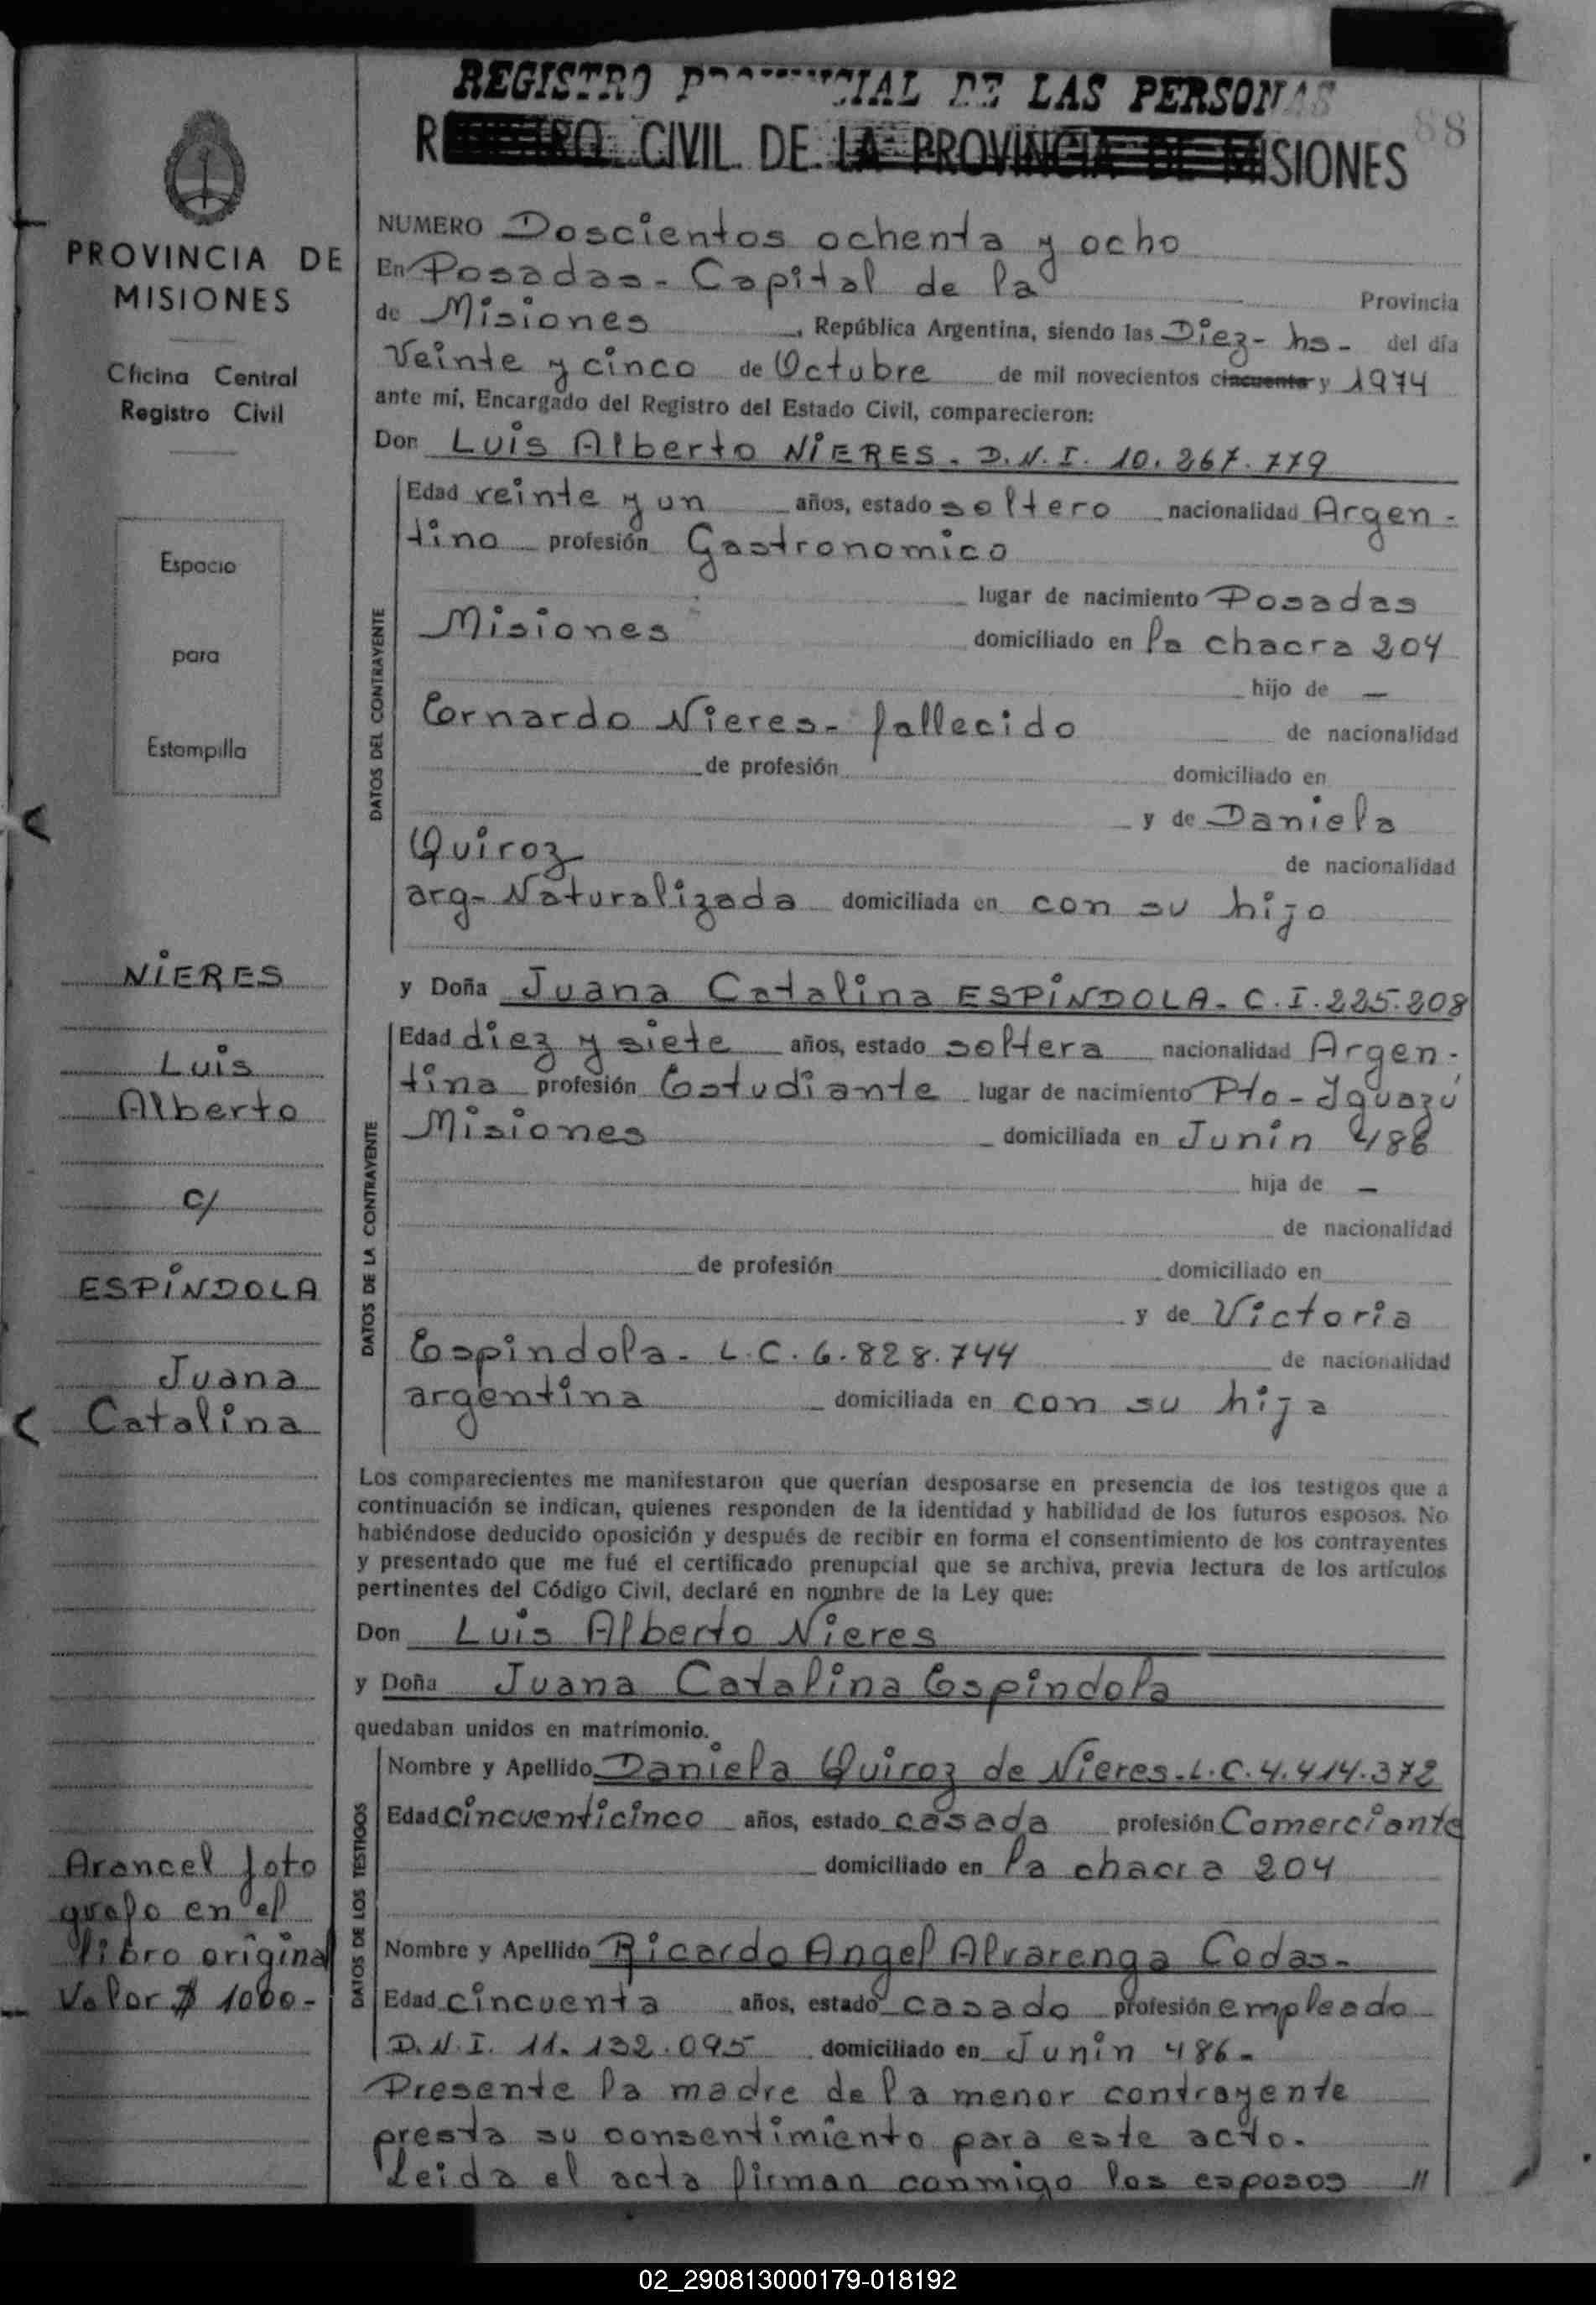 REGISTRO PROVINCIAL DE LAS PERSONAS
REGISTRO CIVIL DE LA PROVINCIA DE MISIONES
88
PROVINCIA DE
MISIONES
Oficina Central
Registro Civil
Espacio
para
Estampilla
NIERES
Luis
Alberto
c/
ESPÍNDOLA
Juana
Catalina
Arancel foto
grafo en el
libro original
Valor $ 1000-
NUMERO Doscientos ochenta y ocho
En Posadas - Capital de la Provincia
de Misiones, República Argentina, siendo las Diez - hs - del día
Veinte y cinco de Octubre de mil novecientos cincuenta y 1974
ante mí, Encargado del Registro del Estado Civil, comparecieron:
Don Luis Alberto NIERES - D.N.I. 10.267.779
DATOS DEL CONTRAYENTE
Edad veinte y un años, estado soltero nacionalidad Argen-
tino profesión Gastronomico
lugar de nacimiento Posadas
Misiones domiciliado en la chacra 204
hijo de —
Ernardo Nieres - fallecido de nacionalidad
de profesión domiciliado en
y de Daniela
Quiroz de nacionalidad
arg - Naturalizada domiciliada en con su hijo
y Doña Juana Catalina ESPÍNDOLA - C.I. 225.208
DATOS DE LA CONTRAYENTE
Edad diez y siete años, estado soltera nacionalidad Argen-
tina profesión Estudiante lugar de nacimiento Pto - Iguazú
Misiones domiciliada en Junín 486
hija de —
de nacionalidad
de profesión domiciliado en
y de Victoria
Espíndola - L.C. 6.828.744 de nacionalidad
argentina domiciliada en con su hija
Los comparecientes me manifestaron que querían desposarse en presencia de los testigos que a
continuación se indican, quienes responden de la identidad y habilidad de los futuros esposos. No
habiéndose deducido oposición y después de recibir en forma el consentimiento de los contrayentes
y presentado que me fué el certificado prenupcial que se archiva, previa lectura de los artículos
pertinentes del Código Civil, declaré en nombre de la Ley que:
Don Luis Alberto Nieres
y Doña Juana Catalina Espíndola
quedaban unidos en matrimonio.
DATOS DE LOS TESTIGOS
Nombre y Apellido Daniela Quiroz de Nieres - L.C. 4.414.372
Edad cincuenticinco años, estado casada profesión Comerciante
domiciliado en la chacra 204
Nombre y Apellido Ricardo Angel Alvarenga Codas -
Edad cincuenta años, estado casado profesión empleado
D.N.I. 11.132.095 domiciliado en Junín 486 -
Presente la madre de la menor contrayente
presta su consentimiento para este acto.
Leida el acta firman conmigo los esposos //
02_290813000179-018192